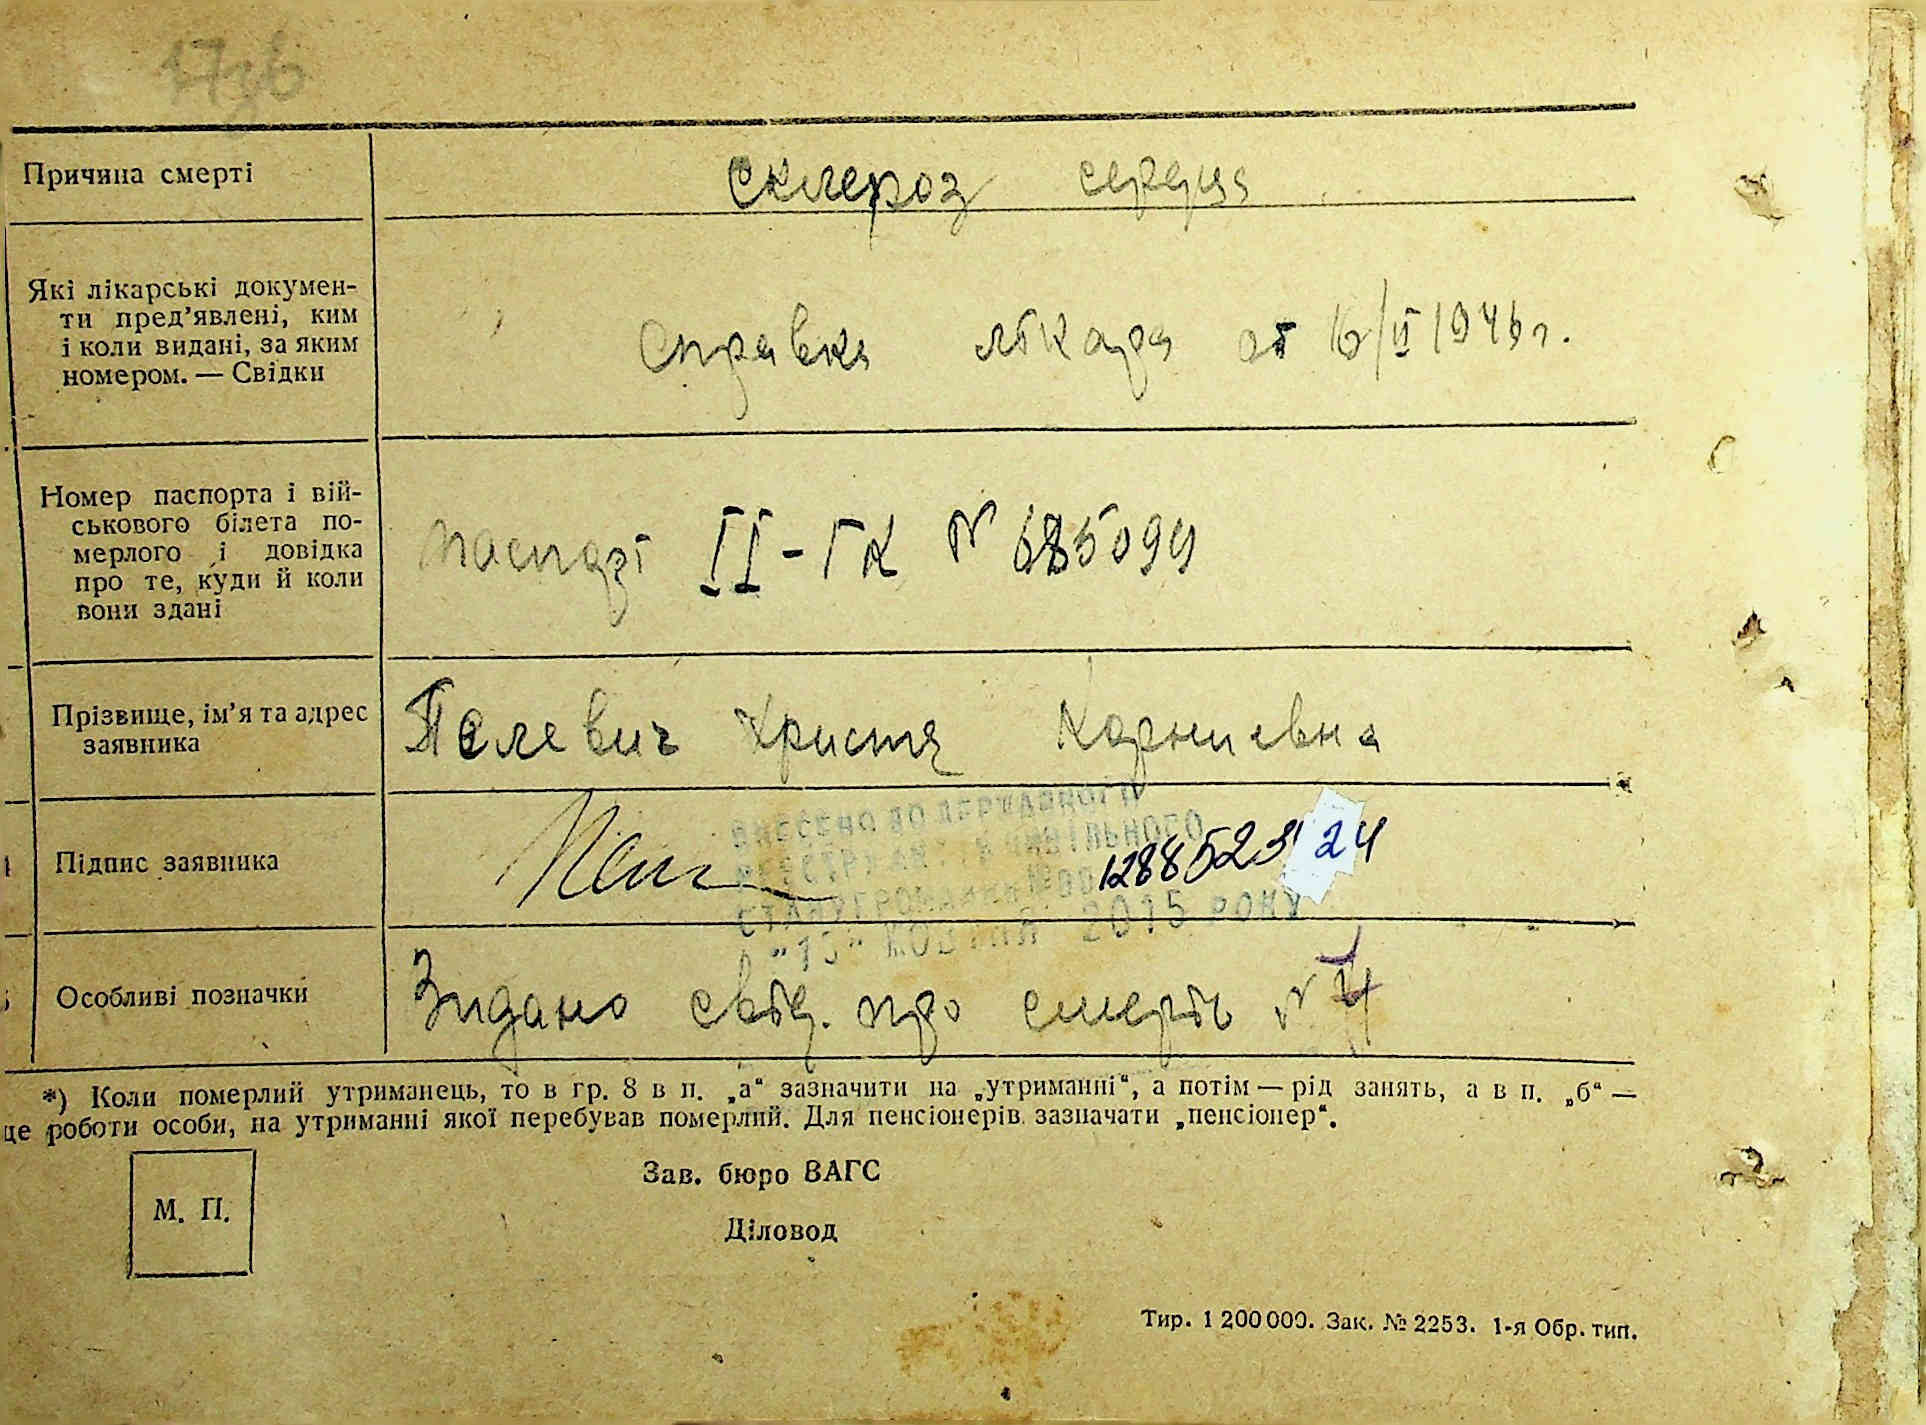 17зб
Причина смерті
склероз серця
Які лікарські докумен-
ти пред’явлені, ким
і коли видані, за яким
номером. — Свідки
Справка лікаря от 16/II 1946 г.
Номер паспорта і вій-
ськового білета по-
мерлого і довідка
про те, куди й коли
вони здані
паспорт II-ГК № 685099
Прізвище, ім’я та адрес
заявника
Пелевич Христя Корниевна
Підпис заявника
ВНЕСЕНО ДО ДЕРЖАВНОГО
РЕЄСТРУ АКТІВ ЦИВІЛЬНОГО
СТАНУ ГРОМАДЯН № 00
128852 24
"15" ЖОВТНЯ 2015 РОКУ
Особливі позначки
Видано свід. про смерть №
*) Коли померлий утриманець, то в гр. 8 в п. „а“ зазначити на „утриманні“, а потім — рід занять, а в п. „б“ —
це роботи особи, на утриманні якої перебував померлий. Для пенсіонерів зазначати „пенсіонер“.
М. П.
Зав. бюро ВАГС
Діловод
Тир. 1 200 000. Зак. № 2253. 1-я Обр. тип.